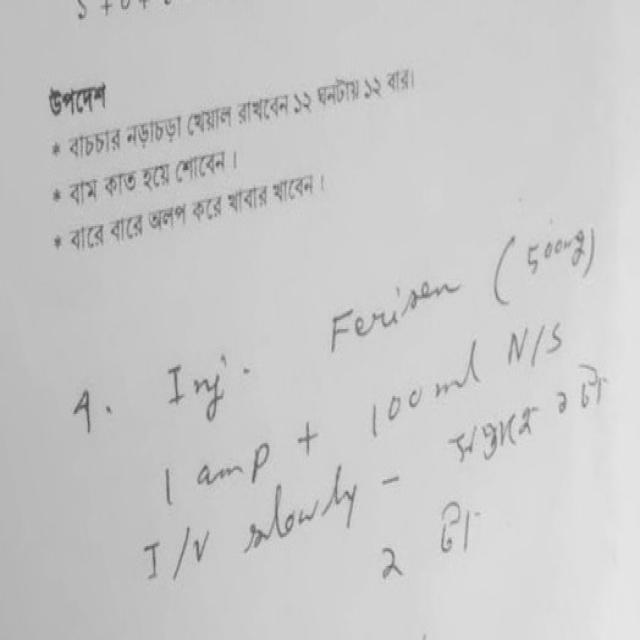 উপদেশ
* বাচচার নড়াচড়া খেয়াল রাখবেন ১২ ঘনটায় ১২ বার।
* বাম কাত হয়ে শোবেন।
* বারে বারে অলপ করে খাবার খাবেন।
4. Inj. Ferisen (500mg)
1 amp + 100ml N/S
I/V slowly - সপ্তাহে ২ টা
২ টা